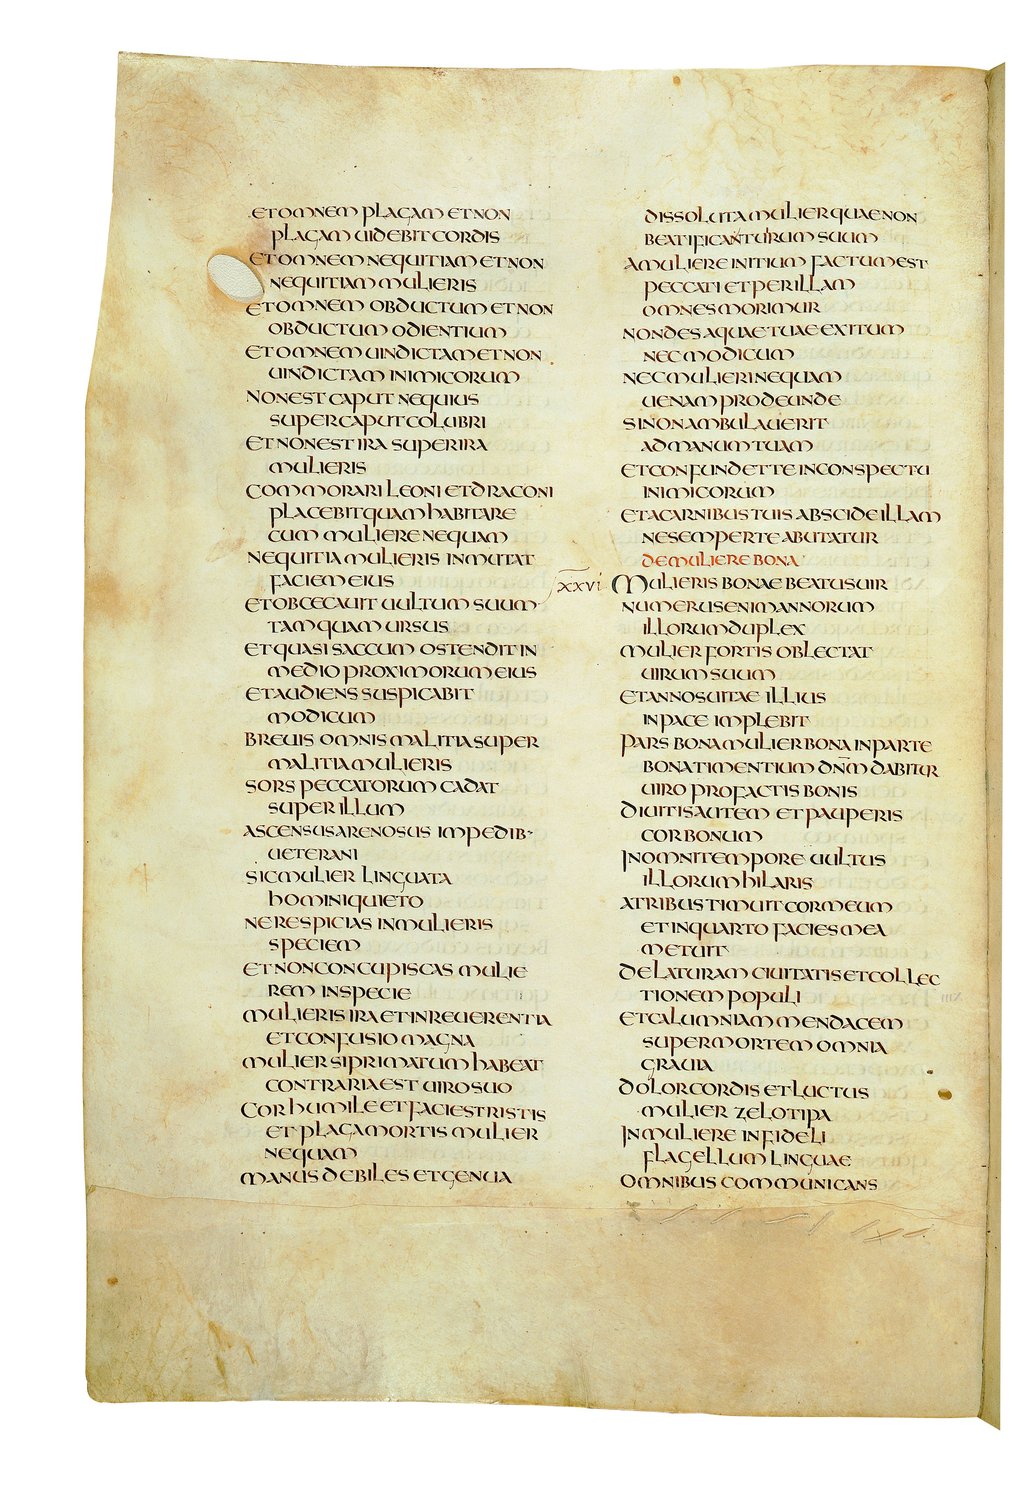 ET OMNEM PLAGAM ET NON
PLAGAM UIDEBIT CORDIS
ET OMNEM NEQUITIAM ET NON
NEQUITIAM MULIERIS
ET OMNEM OBDUCTUM ET NON
OBDUCTUM ODIENTIUM
ET OMNEM UINDICTAM ET NON
UINDICTAM INIMICORUM
NON EST CAPUT NEQUIUS
SUPER CAPUT COLUBRI
ET NON EST IRA SUPER IRA
MULIERIS
COMMORARI LEONI ET DRACONI
PLACEBIT QUAM HABITARE
CUM MULIERE NEQUAM
NEQUITIA MULIERIS INMUTAT
FACIEM EIUS
ET OBCECAUIT UULTUM SUUM
TAMQUAM URSUS
ET QUASI SACCUM OSTENDIT IN
MEDIO PROXIMORUM EIUS
ET AUDIENS SUSPICABIT
MODICUM
BREUIS OMNIS MALITIA SUPER
MALITIA MULIERIS
SORS PECCATORUM CADAT
SUPER ILLUM
ASCENSUS ARENOSUS IMPEDIB·
UETERANI
SIC MULIER LINGUATA
HOMINI QUIETO
NE RESPICIAS IN MULIERIS
SPECIEM
ET NON CONCUPISCAS MULIE
REM IN SPECIE
MULIERIS IRA ET INREUERENTIA
ET CONFUSIO MAGNA
MULIER SI PRIMATUM HABEAT
CONTRARIA EST UIRO SUO
COR HUMILE ET FACIES TRISTIS
ET PLAGA MORTIS MULIER
NEQUAM
MANUS DEBILES ET GENUA
DISSOLUTA MULIER QUAE NON
BEATIFICANT UIRUM SUUM
A MULIERE INITIUM FACTUM EST
PECCATI ET PER ILLAM
OMNES MORIMUR
NON DES AQUAE TUAE EXITUM
NEC MODICUM
NEC MULIERI NEQUAM
UENAM PRODEUNDE
SI NON AMBULAUERIT
AD MANUM TUAM
ET CONFUNDET TE IN CONSPECTU
INIMICORUM
ET A CARNIBUS TUIS ABSCIDE ILLAM
NE SEMPER TE ABUTATUR
DE MULIERE BONA
XXVI MULIERIS BONAE BEATUS UIR
NUMERUS ENIM ANNORUM
ILLORUM DUPLEX
MULIER FORTIS OBLECTAT
UIRUM SUUM
ET ANNOS UITAE ILLIUS
IN PACE IMPLEBIT
PARS BONA MULIER BONA IN PARTE
BONA TIMENTIUM DN̄M DABITUR
UIRO PRO FACTIS BONIS
DIUITIS AUTEM ET PAUPERIS
COR BONUM
IN OMNI TEMPORE UULTUS
ILLORUM HILARIS
A TRIBUS TIMUIT COR MEUM
ET IN QUARTO FACIES MEA
METUIT
DELATURAM CIUITATIS ET COLLEC
TIONEM POPULI
ET CALUMNIAM MENDACEM
SUPER MORTEM OMNIA
GRAUIA
DOLOR CORDIS ET LUCTUS
MULIER ZELOTIPA
IN MULIERE INFIDELI
FLAGELLUM LINGUAE
OMNIBUS COMMUNICANS